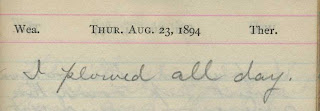 Wea. THUR. AUG. 23, 1894 Ther.
I plowed all day.